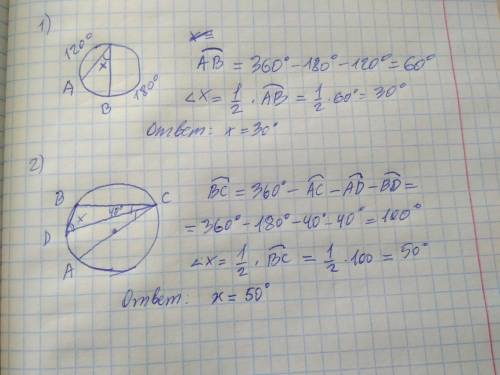 1)
120°
x
A
B
180°
x =
AB = 360° - 180° - 120° = 60°
∠x = 1/2 · AB = 1/2 · 60° = 30°
Ответ: x = 30°
2)
B
C
40°
x
D
A
BC = 360° - AC - AD - BD =
= 360° - 180° - 40° - 40° = 100°
∠x = 1/2 · BC = 1/2 · 100 = 50°
Ответ: x = 50°